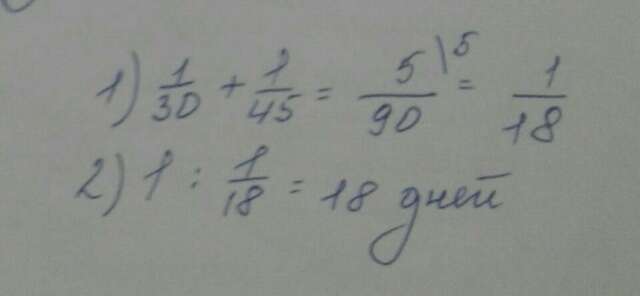 1) 1/30 + 1/45 = 5/90 \5 = 1/18
2) 1 : 1/18 = 18 дней